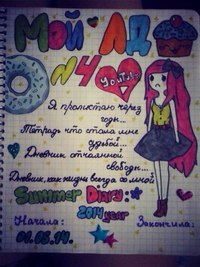 Мой ЛД
№4
YouTube
Я пролистаю через
годы...
Тетрадь что стала мне
судьбой...
Дневник отчаянной
свободы...
Дневник, как жизнь всегда со мной
Summer Diary:
2014 year
Начала:
Закончила:
01.06.14.